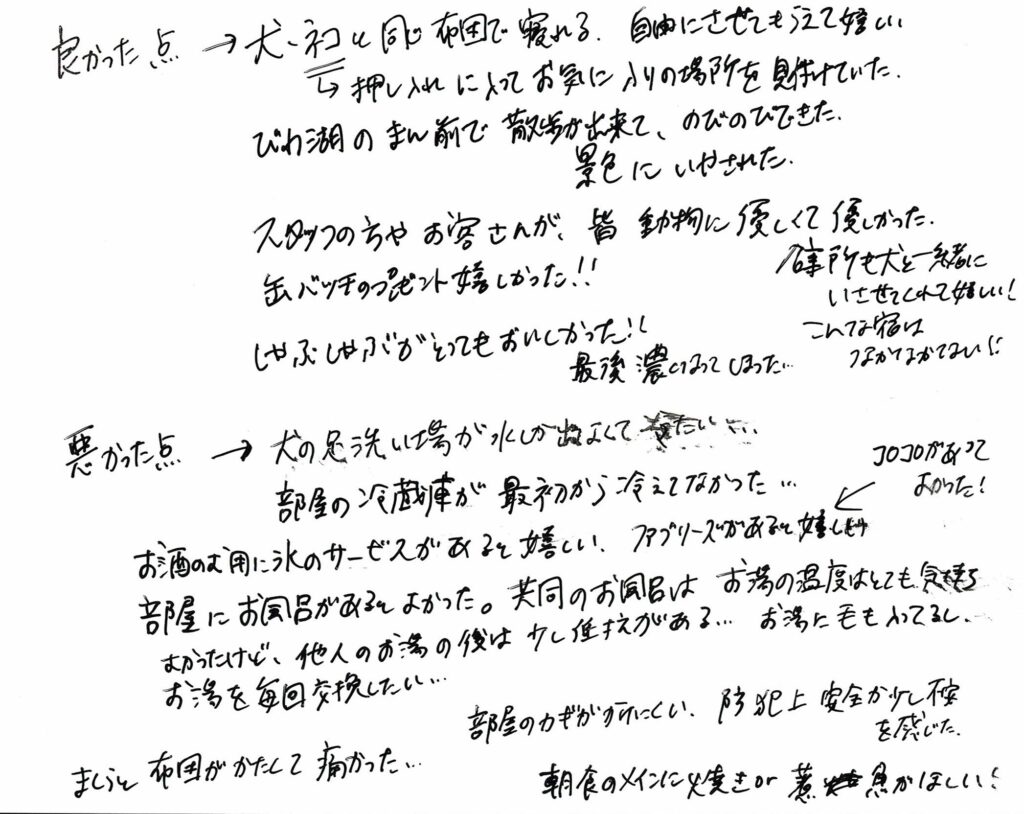 良かった点 → 犬・ネコと同じ布団で寝れる。自由にさせてもらえて嬉しい
↳ 押し入れに入ってお気に入りの場所を見付けていた。
びわ湖のまん前で散歩が出来て、のびのびできた。
景色にいやされた。
スタッフの方やお客さんが、皆動物に優しくて優しかった。
缶バッチのプレゼント嬉しかった!!
しゃぶしゃぶがとってもおいしかった!!
最後濃くなってしまった…
場所も犬と一緒に
いさせてくれて嬉しい!
こんな宿は
なかなかない!!
悪かった点 → 犬の足洗い場が水しか出なくて冷たい…
部屋の冷蔵庫が最初から冷えてなかった…
コロコロがあって
よかった!
お酒のむ用に氷のサービスがあると嬉しい、ファブリーズがあると嬉しい
部屋にお風呂があるとよかった。共同のお風呂はお湯の温度はとても気持ち
よかったけど、他人のお湯の後は少し抵抗がある… お湯に毛も入ってるし、
お湯を毎回交換したい…
部屋のカギがかけにくい、防犯上安全か少し不安
を感じた。
ましょうと布団がかたくて痛かった…
朝食のメインに焼きor煮魚がほしい!